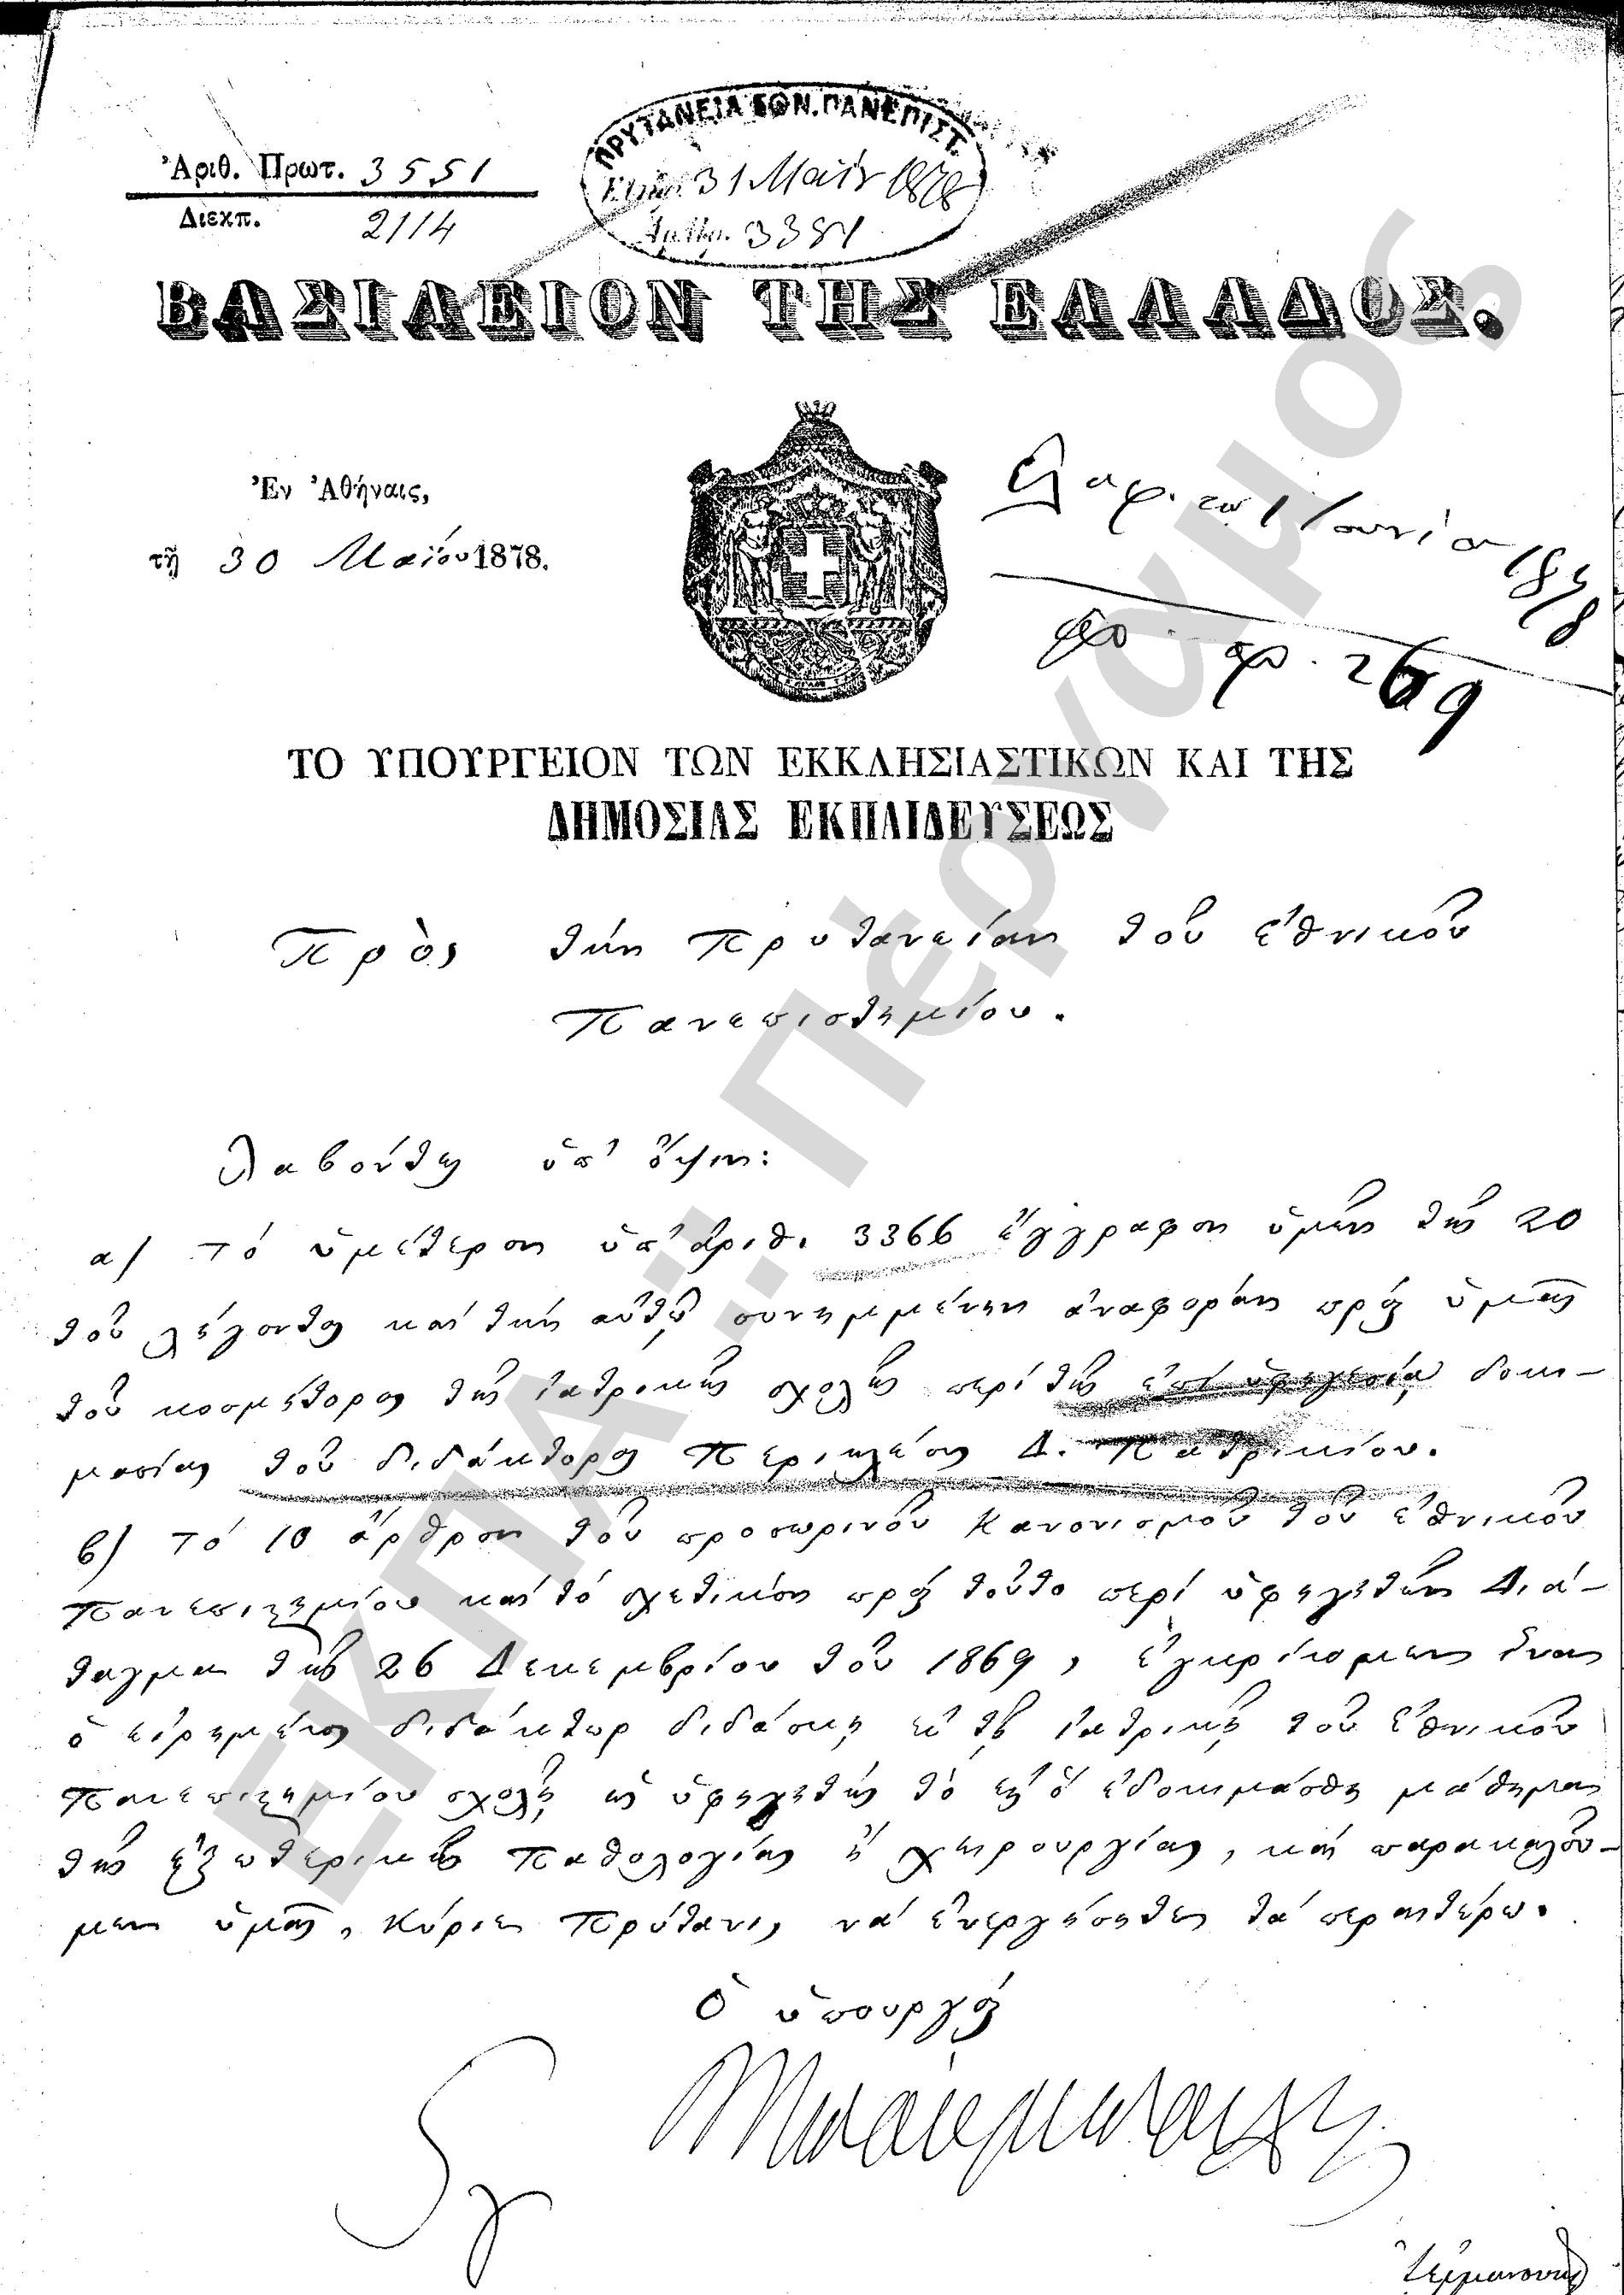 ΠΡΥΤΑΝΕΙΑ ΕΘΝ. ΠΑΝΕΠΙΣΤ.
31 Μαΐου 1878
Ἀριθ. 3381
Ἀριθ. Πρωτ. 3551
Διεκπ. 2114
ΒΑΣΙΛΕΙΟΝ ΤΗΣ ΕΛΛΑΔΟΣ.
Ἐν Ἀθήναις,
τῇ 30 Μαΐου 1878.
1 Ἰουνίου 1878
ΤΟ ΥΠΟΥΡΓΕΙΟΝ ΤΩΝ ΕΚΚΛΗΣΙΑΣΤΙΚΩΝ ΚΑΙ ΤΗΣ
ΔΗΜΟΣΙΑΣ ΕΚΠΑΙΔΕΥΣΕΩΣ
Πρὸς τὴν Πρυτανείαν τοῦ ἐθνικοῦ
Πανεπιστημίου.
Λαβόντες ὑπ' ὄψιν:
α) Τὸ ὑμέτερον ὑπ' ἀριθ. 3366 ἔγγραφον ὑμῶν τῆς 20
τοῦ λήγοντος καὶ τὴν αὐτῷ συνημμένην ἀναφορὰν πρὸς ὑμᾶς
τοῦ κοσμήτορος τῆς ἰατρικῆς σχολῆς περὶ τῆς ἐπὶ ὑφηγεσίᾳ δοκι-
μασίας τοῦ διδάκτορος Περικλέους Δ. Πατρικίου.
β) Τὸ 10 ἄρθρον τοῦ προσωρινοῦ Κανονισμοῦ τοῦ ἐθνικοῦ
Πανεπιστημίου καὶ τὸ σχετικὸν πρὸς τοῦτο περὶ ὑφηγητῶν Διά-
ταγμα τῆς 26 Δεκεμβρίου τοῦ 1869, ἐγκρίνομεν ἵνα
ὁ εἰρημένος διδάκτωρ διδάσκῃ ἐν τῇ ἰατρικῇ τοῦ ἐθνικοῦ
Πανεπιστημίου σχολῇ ὡς ὑφηγητὴς τὸ εἰς ὃ ἐδοκιμάσθη μάθημα
τῆς ἐξωτερικῆς παθολογίας ἢ χειρουργίας, καὶ παρακαλοῦ-
μεν ὑμᾶς, Κύριε Πρύτανι, νὰ ἐνεργήσητε τὰ περαιτέρω.
Ὁ ὑπουργὸς
ΕΚΠΑ:: Πέργαμος